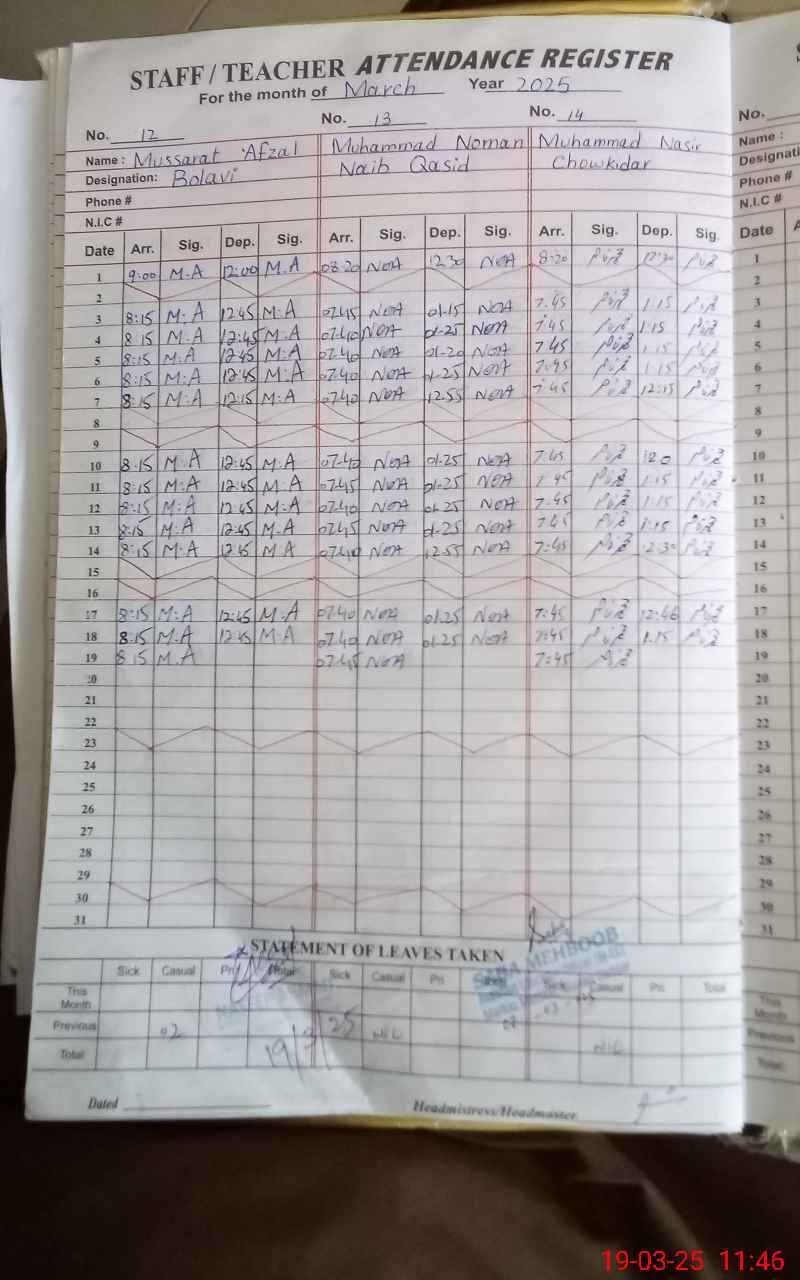 STAFF / TEACHER ATTENDANCE REGISTER
For the month of March Year 2025
No. 12 No. 13 No. 14
Name : Mussarat Afzal Muhammad Noman Muhammad Nasir
Designation: Bolavi Naib Qasid Chowkidar
Phone #
N.I.C #
Date Arr. Sig. Dep. Sig. Arr. Sig. Dep. Sig. Arr. Sig. Dep. Sig.
1 9:00 M.A 12:00 M.A 08-20 NOA 12 30 NOA 8:20 12:30
2
3 8:15 M:A 12:45 M:A 07.45 NOA 01-15 NOA 7.45 1.15
4 8 15 M.A 12:45 M:A 07.40 NOA 01-25 NOA 7:45 1:15
5 8:15 M:A 12:45 M:A 07.40 NOA 01-20 NOA 7.45 1.15
6 8:15 M:A 12:45 M:A 07.40 NOA 01-25 NOA 7:45 1.15
7 8:15 M:A 12:15 M:A 07.40 NOA 12.55 NOA 7:45 12:15
8
9
10 8:15 M.A 12:45 M.A 07.40 NOA 01-25 NOA 7:45
11 8:15 M:A 12:45 M:A 07.45 NOA 01-25 NOA 7.45 1.15
12 8:15 M:A 12:45 M:A 07.40 NOA 01.25 NOA 7.45 1.15
13 8:15 M:A 12:45 M:A 07.45 NOA 01-25 NOA 7.45 1.15
14 8:15 M:A 12:45 M.A 07.40 NOA 12.55 NOA 7:45
15
16
17 8:15 M:A 12:45 M:A 07.40 NOA 01.25 NOA 7:45 12:46
18 8:15 M:A 12:45 M:A 07.40 NOA 01-25 NOA 7:45 1.15
19 8 15 M.A 07.45 NOA 7:45
20
21
22
23
24
25
26
27
28
29
30
31
STATEMENT OF LEAVES TAKEN
Sick Casual Pri Total Sick Casual Pri Sick Casual Pri Total
SABA MEHBOOB
This Month
Previous 02 NIL
Total NIL
19/3/25
Dated Headmistress/Headmaster
No.
Name :
Phone #
N.I.C #
Date
1
2
3
4
5
6
7
8
9
10
11
12
13
14
15
16
17
18
19
20
21
22
23
24
25
26
27
28
29
30
31
This Month
Previous
Total
19-03-25 11:46